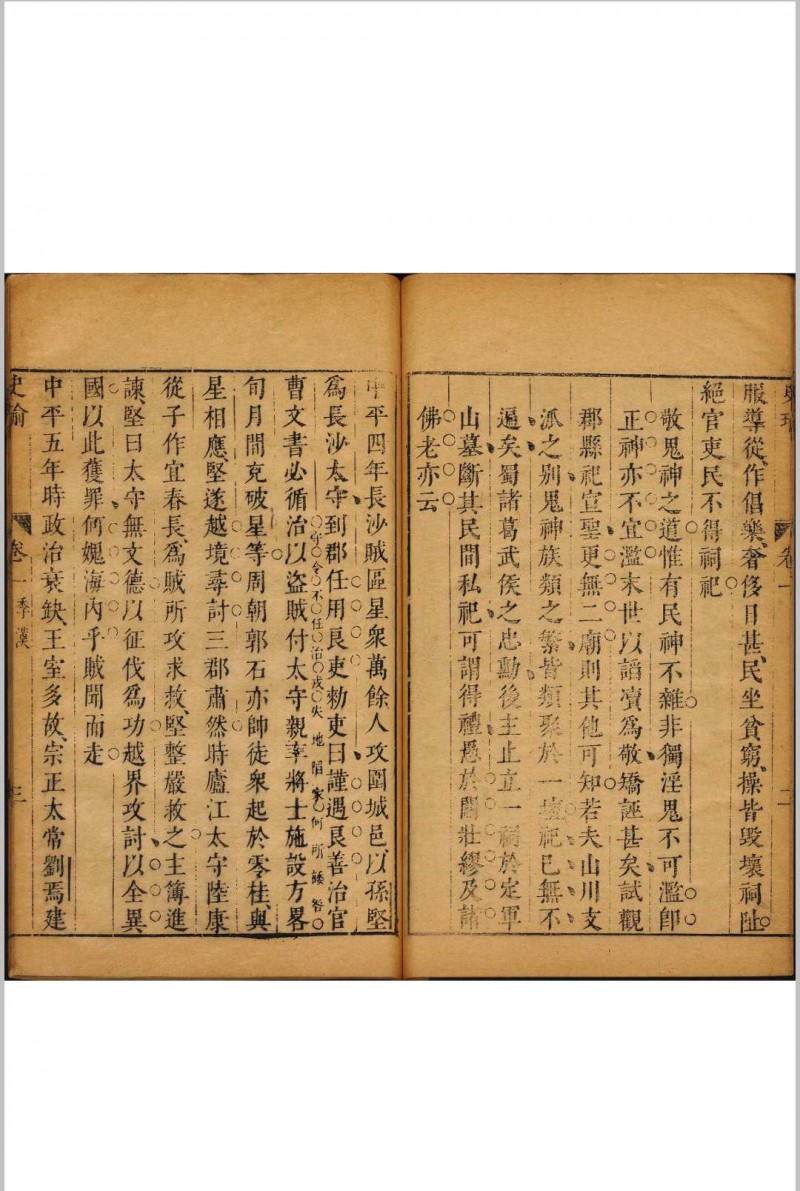 卷一
二
服導從作倡樂奢侈日甚民坐貧窮操皆毀壞祠
絕官吏民不得祠祀
敬鬼神之道惟有民神不雜非獨淫鬼不可濫卽
正神亦不宜濫末世以謟凟爲敬矯誣甚矣試觀
郡縣祀宣聖更無二廟則其他可知若夫山川支
派之别鬼神族類之繁皆類聚於一壇祀已無不
遍矣蜀諸葛武侯之忠勳後主止立一祠於定軍
山墓斷其民間私祀可謂得禮愚於關壯繆及諸
佛老亦云
中平四年長沙賊區星衆萬餘人攻圍城邑以孫堅
爲長沙太守到郡任用良吏勑吏曰謹遇良善治官
曹文書必循治以盜賊付太守親率將士施設方略
守令不任治戎失地陷家何所諉咎
旬月間克破星等周朝郭石亦帥徒衆起於零桂與
星相應堅遂越境尋討三郡肅然時廬江太守陸康
從子作宜春長爲賊所攻求救堅整嚴救之主簿進
諫堅曰太守無文德以征伐爲功越界攻討以全異
國以此獲罪何媿海內乎賊聞而走
中平五年時政治衰缺王室多故宗正太常劉焉建
史
卷一
季漢
三